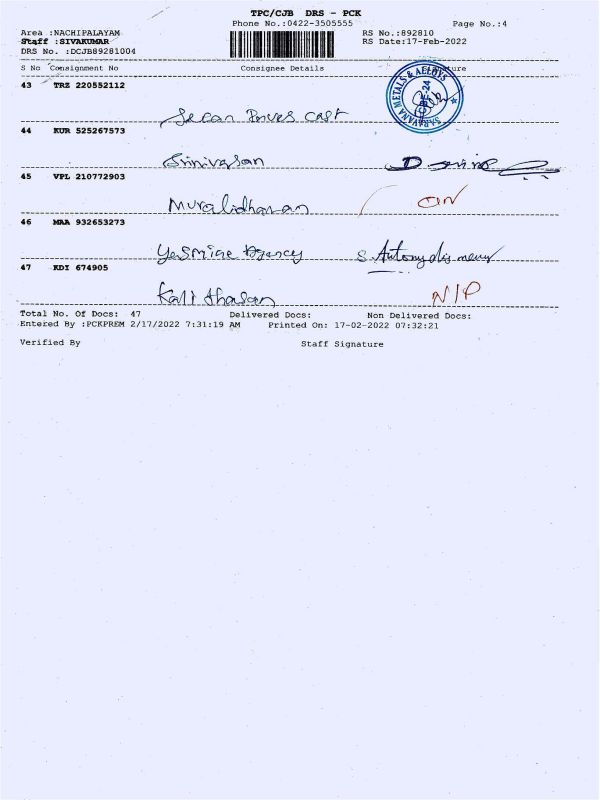 TPC/CJB DRS - PCK
Phone No.:0422-3505555 Page No.:4
Area :NACHIPALAYAM RS No.:892810
Staff :SIVAKUMAR RS Date:17-Feb-2022
DRS No. :DCJB89281004
S No Consignment No Consignee Details Signature
43 TRZ 220552112
SARAVANA METALS & ALLOYS
CBE-24
44 KUR 525267573
Srinivasan
45 VPL 210772903
Muralidharan
46 MAA 932653273
Yasmine Agency S. Antony
47 KDI 674905
Kali thasan N/P
Total No. Of Docs: 47 Delivered Docs: Non Delivered Docs:
Entered By :PCKPREM 2/17/2022 7:31:19 AM Printed On: 17-02-2022 07:32:21
Verified By Staff Signature